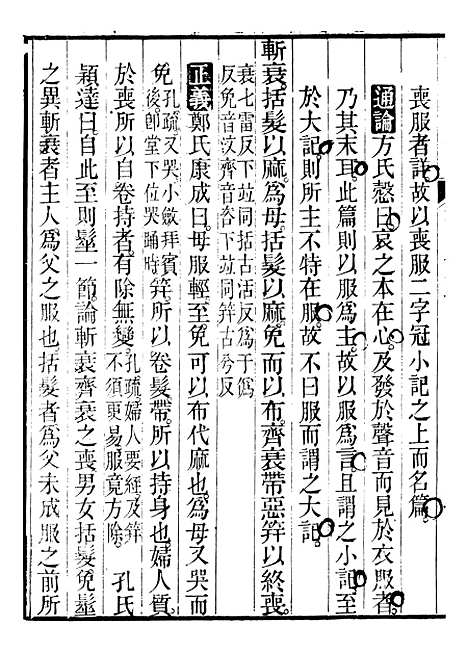 喪服者詳故以喪服二字冠小記之上而名篇
通論方氏慤曰哀之本在心及發於聲音而見於衣服者
乃其末耳此篇則以服為主故以服為言且謂之小記至
於大記則所主不特在服故不曰服而謂之大記
斬衰括髮以麻為母括髮以麻免而以布齊衰帶惡笄以終喪
衰七雷反下竝同括古活反為于僞
反免音汶齊音咨下竝同笄古兮反
正義鄭氏康成曰母服輕至免可以布代麻也為母又哭而
免孔疏又哭小斂拜賓
後卽堂下位哭踊時笄所以卷髮帶所以持身也婦人質
於喪所以自卷持者有除無變孔疏婦人要絰及笄
不須更易服竟方除孔氏
穎達曰自此至則髽一節論斬衰齊衰之喪男女括髮免髽
之異斬衰者主人為父之服也括髮者為父未成服之前所